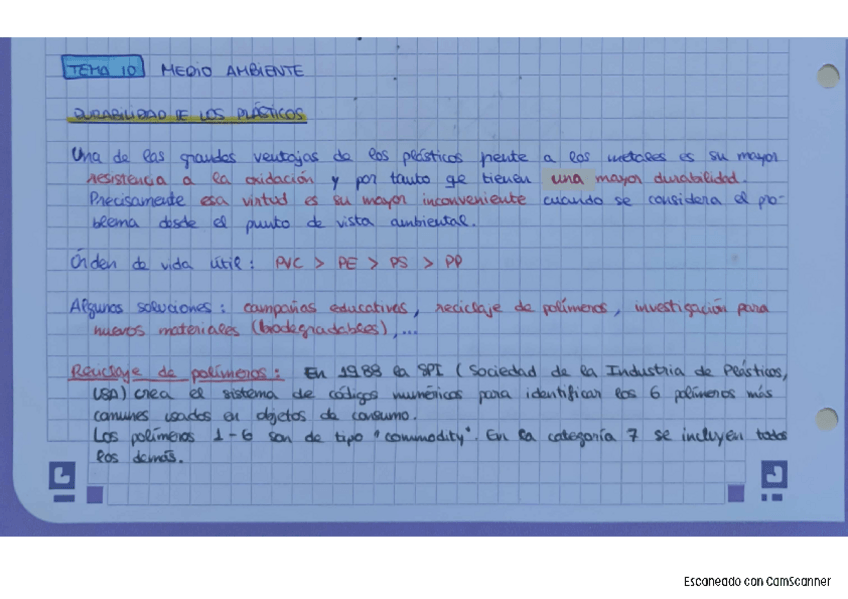 TEMA 10 MEDIO AMBIENTE
DURABILIDAD DE LOS PLÁSTICOS
Una de las grandes ventajas de los plásticos frente a los metales es su mayor
resistencia a la oxidación y por tanto qe tienen una mayor durabilidad.
Precisamente esa virtud es su mayor inconveniente cuando se considera el pro-
blema desde el punto de vista ambiental.
Órden de vida útil: PVC > PE > PS > PP
Algunas soluciones: campañas educativas, reciclaje de polímeros, investigación para
nuevos materiales (biodegradables),...
Reciclaje de polímeros: En 1988 la SPI (Sociedad de la Industria de Plásticos,
USA) crea el sistema de códigos numéricos para identificar los 6 polímeros más
comunes usados en objetos de consumo.
Los polímeros 1-6 son de tipo "commodity". En la categoría 7 se incluyen todos
los demás.
Escaneado con CamScanner